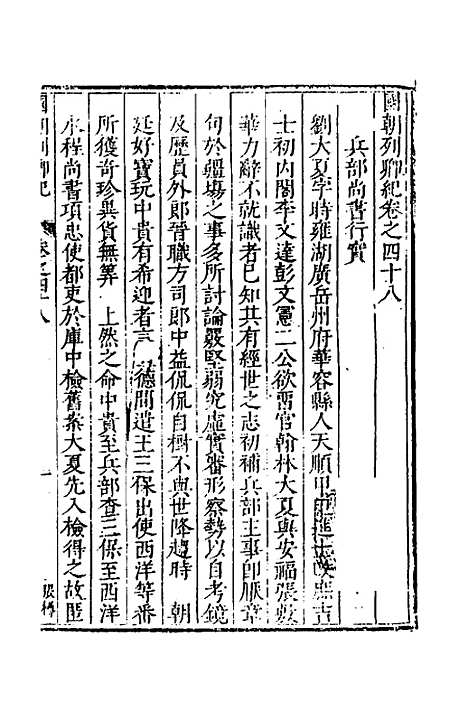 國朝列卿紀卷之四十八
兵部尚書行實
劉大夏字時雍湖廣岳州府華容縣人天順甲申進士改庶吉
士初內閣李文達彭文憲二公欲畱官翰林大夏與安福張敷
華力辭不就識者已知其有經世之志初補兵部主事卽厭章
句於疆場之事多所討論覈堅弱究虛實審形察勢以自考鏡
及歷員外郎晉職方司郎中益侃侃自樹不與世降趨時 朝
廷好寶玩中貴有希迎者言 德間遣王三保出使西洋等番
所獲奇珍異貨無筭 上然之命中貴至兵部查三保至西洋
水程尚書項忠使都吏於庫中檢舊案大夏先入檢得之故匿
國朝列卿紀 卷之四十八 一